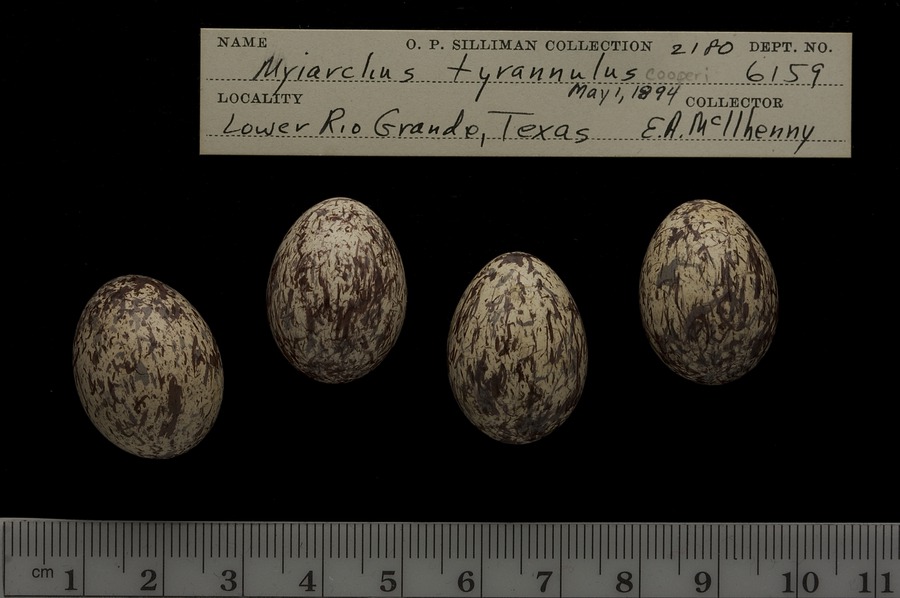 NAME O. P. SILLIMAN COLLECTION 2180 DEPT. NO.
Myiarchus tyrannulus cooperi 6159
May 1, 1894
LOCALITY COLLECTOR
Lower Rio Grande, Texas E.A. McIlhenny
cm 1 2 3 4 5 6 7 8 9 10 11